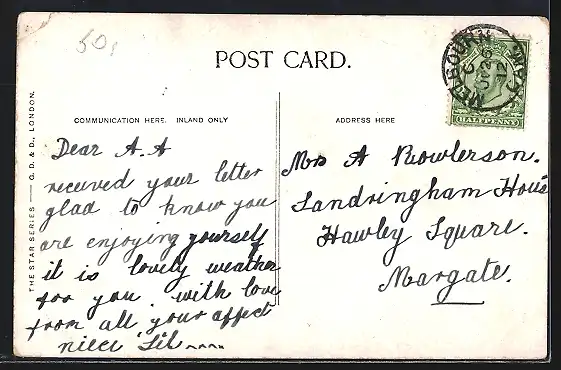 50,
POST CARD.
COMMUNICATION HERE. INLAND ONLY
ADDRESS HERE
THE STAR SERIES — G. D. & D., LONDON.
Dear A. A
received your letter
glad to know you
are enjoying yourself
it is lovely weather
for you. with love
from all, your affect
niece Lil
Mrs A Rowlerson.
Sandringham House
Hawley Square.
Margate.
MELBOURN
CAMBS
12
HALFPENNY